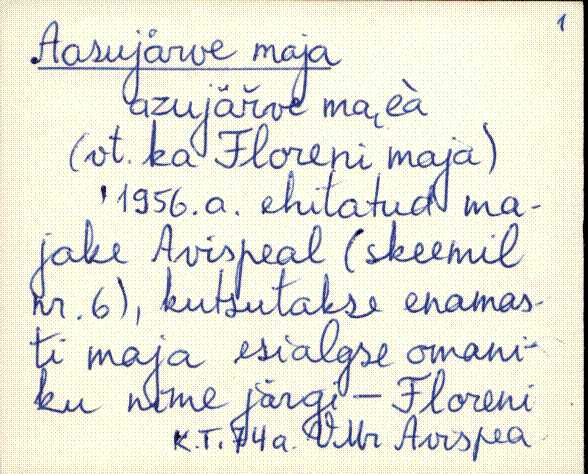 1
Aasujärve maja
azujäŕve ma,eà
(vt. ka Floreni maja)
'1956.a. ehitatud ma-
jake Avispeal (skeemil
nr. 6), kutsutakse enamas-
ti maja esialgse omani-
ku nime järgi – Floreni
K.T. 74a. VMr Avispea